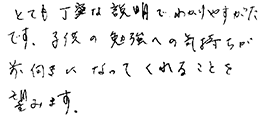 とても丁寧な説明でわかりやすかった
です。子供の勉強への気持ちが
前向きになってくれることを
望みます。